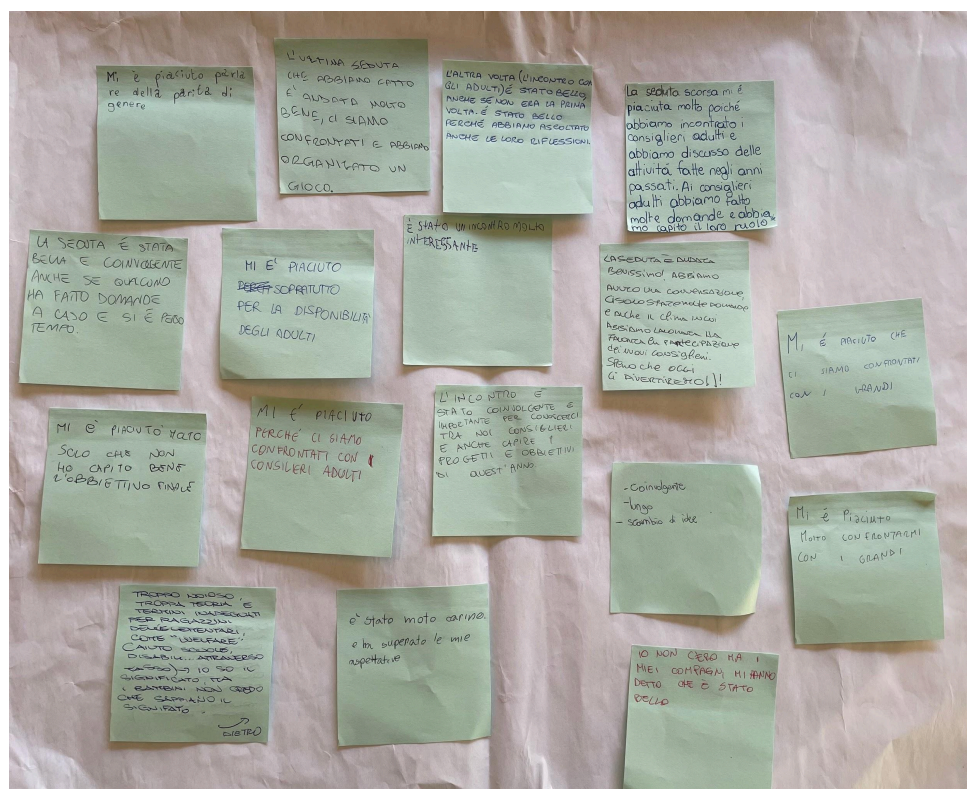 Mi è piaciuto parla
re della parità di
genere
L'ULTIMA SEDUTA
CHE ABBIAMO FATTO
E' ANDATA MOLTO
BENE, CI SIAMO
CONFRONTATI E ABBIAMO
ORGANIZATO UN
GIOCO.
L'ALTRA VOLTA (L'INCONTRO CON
GLI ADULTI) É STATO BELLO,
ANCHE SE NON ERA LA PRIMA
VOLTA. É STATO BELLO
PERCHÉ ABBIAMO ASCOLTATO
ANCHE LE LORO RIFLESSIONI.
La seduta scorsa mi é
piaciuta molto poiché
abbiamo incontrato i
consiglieri adulti e
abbiamo discusso delle
attivitá fatte negli anni
passati. Ai consiglieri
adulti abbiamo fatto
molte domande e abbia
mo capito il loro ruolo
LA SEDUTA É STATA
BELLA E COINVOLGENTE
ANCHE SE QUALCUNO
HA FATTO DOMANDE
A CASO E SI É PERSO
TEMPO.
MI E' PIACIUTO
SOPRATUTTO
PER LA DISPONIBILITÀ
DEGLI ADULTI
É STATO UN INCONTRO MOLTO
INTERESSANTE
LA SEDUTA È ANDATA
BENISSIMO! ABBIAMO
AVUTO UNA CONVERSAZIONE,
CI SONO STATE MOLTE DOMANDE
E ANCHE IL CLIMA
ABBIAMO
LA PARTECIPAZIONE
DEI NUOVI CONSIGLIERI.
SPERO CHE OGGI
CI DIVERTIREMO!
MI É PIACIUTO CHE
CI SIAMO CONFRONTATI
CON I GRANDI
MI E' PIACIUTO MOLTO
SOLO CHE NON
HO CAPITO BENE
L'OBBIETTIVO FINALE
MI E' PIACIUTO
PERCHÉ CI SIAMO
CONFRONTATI CON I
CONSILERI ADULTI
L'INCONTRO É
STATO COINVOLGENTE E
IMPORTANTE PER CONOSCERCI
TRA NOI CONSIGLIERI
E ANCHE CAPIRE I
PROGETTI E OBBIETTIVI
DI QUEST'ANNO.
- Coinvolgente
- lungo
- scambio di idee
MI É PIACIUTO
MOLTO CONFRONTARMI
CON I GRANDI
TROPPO NOIOSO,
TROPPA TEORIA E
TERMINI INADEGUATI
PER RAGAZZINI
DELLE ELEMENTARI
COME "WELFARE"
(AIUTO SCUOLE,
DISABILI... ATTRAVERSO
TASSO) → IO SO IL
SIGNIFICATO, MA
I BAMBINI NON CREDO
CHE SAPPIANO IL
SIGNIFATO.
DIETRO
è stato moto carino.
e ha superato le mie
aspettative
IO NON C'ERO MA I
MIEI COMPAGNI MI HANNO
DETTO CHE È STATO
BELLO